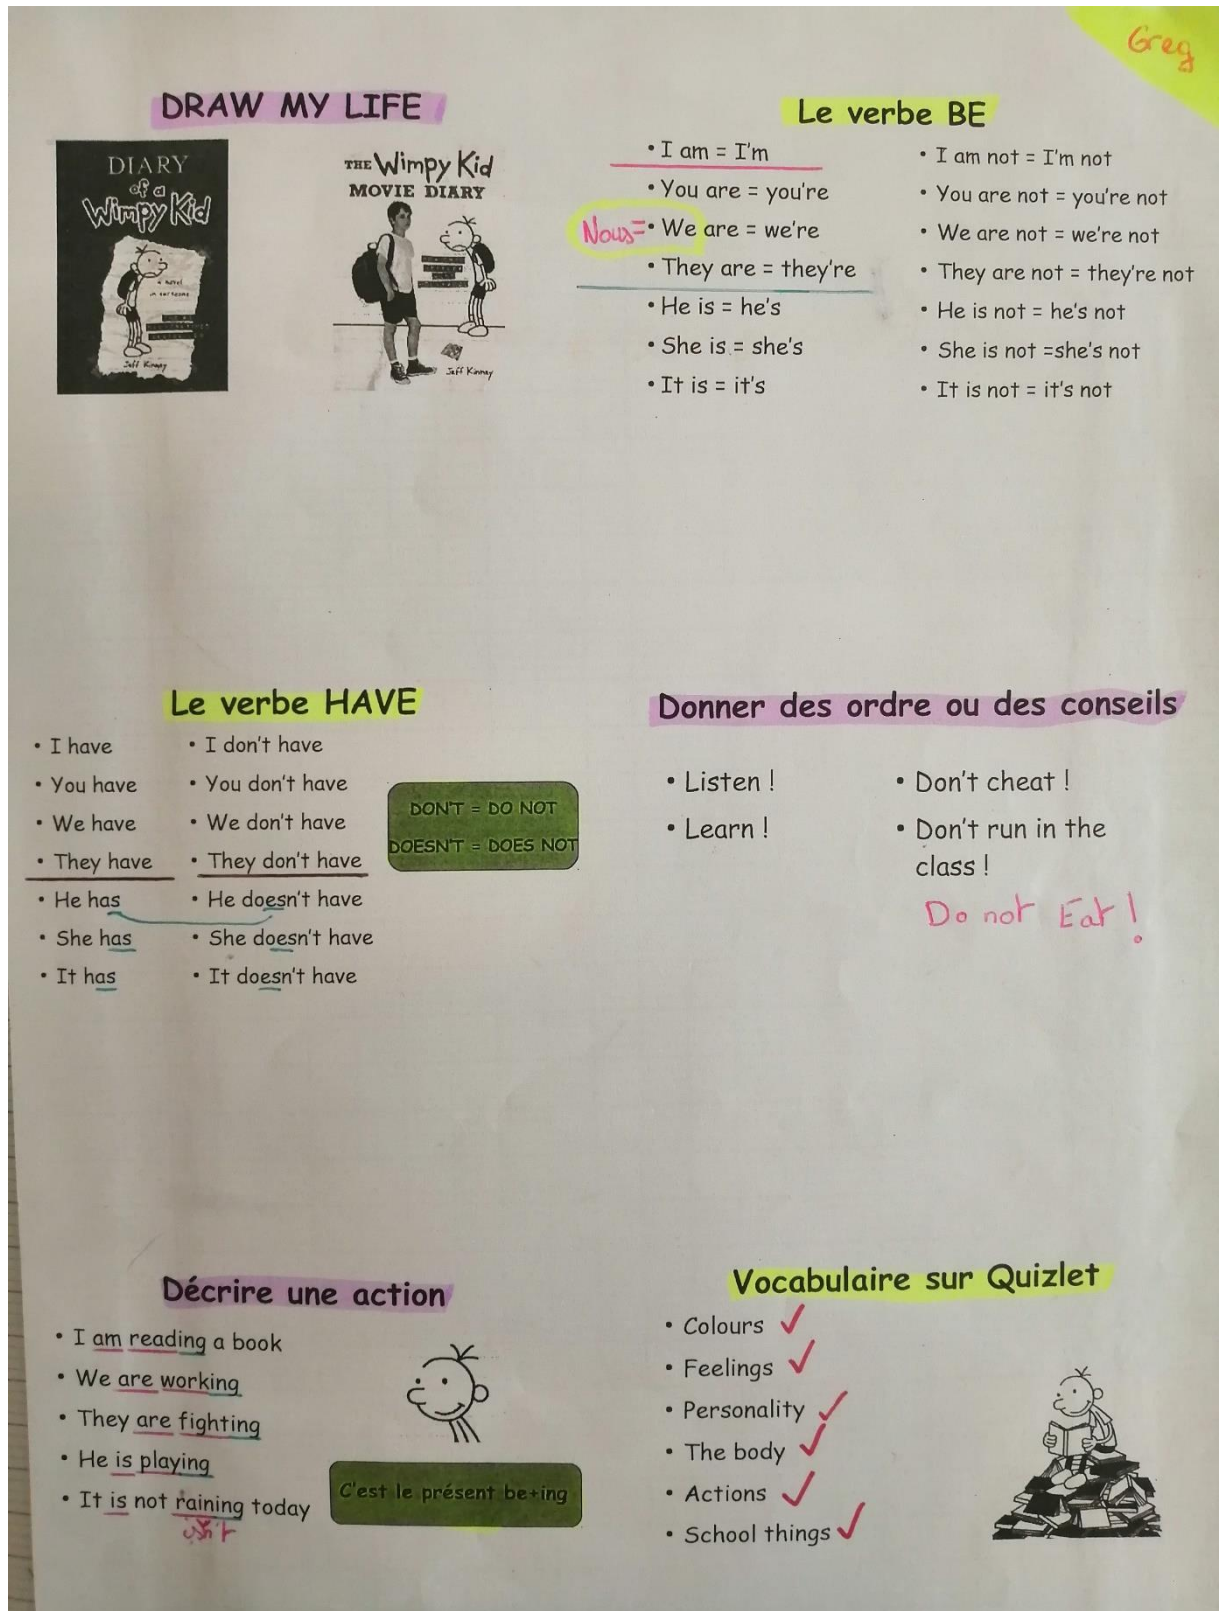 Greg
DRAW MY LIFE
DIARY
of a
Wimpy Kid
a novel
in cartoons
Jeff Kinney
THE Wimpy Kid
MOVIE DIARY
Jeff Kinney
Le verbe BE
• I am = I'm
• You are = you're
Nous= • We are = we're
• They are = they're
• He is = he's
• She is = she's
• It is = it's
• I am not = I'm not
• You are not = you're not
• We are not = we're not
• They are not = they're not
• He is not = he's not
• She is not =she's not
• It is not = it's not
Le verbe HAVE
• I have
• You have
• We have
• They have
• He has
• She has
• It has
• I don't have
• You don't have
• We don't have
• They don't have
• He doesn't have
• She doesn't have
• It doesn't have
DON'T = DO NOT
DOESN'T = DOES NOT
Donner des ordre ou des conseils
• Listen !
• Learn !
• Don't cheat !
• Don't run in the
class !
Do not Eat !
Décrire une action
• I am reading a book
• We are working
• They are fighting
• He is playing
• It is not raining today
C'est le présent be+ing
Vocabulaire sur Quizlet
• Colours ✓
• Feelings ✓
• Personality ✓
• The body ✓
• Actions ✓
• School things ✓